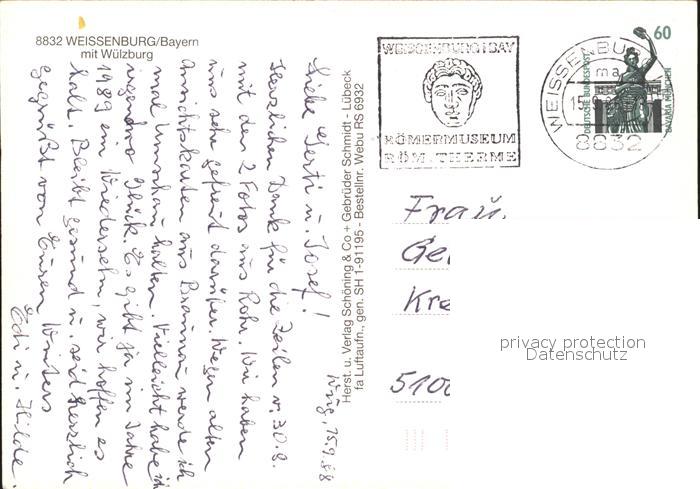 8832 WEISSENBURG/Bayern
mit Wülzburg
Wbg, 15.9.88
Liebe Gerti u. Josef!
Herzlichen Dank für die Zeilen v. 30.8.
mit den 2 Fotos aus Rohr. Wir haben
uns sehr gefreut darüber. Wegen alten
Ansichtskarten aus Braunau werde ich
mal Umschau halten. Vielleicht habe ich
irgendwo Glück. Es gibt ja im Jahre
1989 ein Wiedersehn, wir hoffen es
halt. Bleibt gesund u. seid herzlich
gegrüßt von Euren Winters
Edi u. Hilde.
Herst. u. Verlag Schöning & Co + Gebrüder Schmidt - Lübeck
fa Luftaufn., gen. SH 1-91195 - Bestellnr. Webu RS 6932
WEISSENBURG I BAY
RÖMERMUSEUM
RÖM. THERME
WEISSENBU
ma
15.9.
8832
60
DEUTSCHE BUNDESPOST
BAVARIA MÜNCHEN
Frau
Ge
Kre
5100
privacy protection
Datenschutz